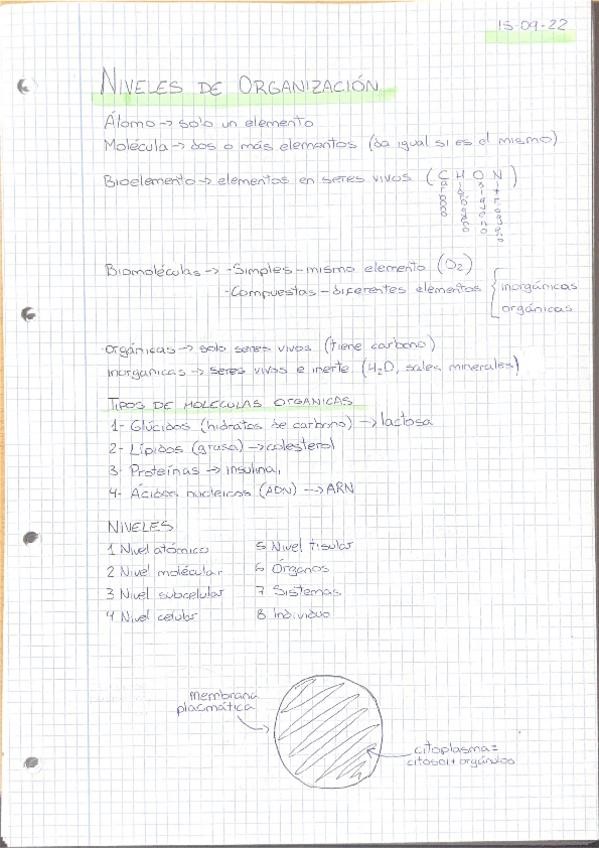 15-09-22
NIVELES DE ORGANIZACIÓN
Átomo → solo un elemento
Molécula → dos o más elementos (da igual si es el mismo)
Bioelemento → elementos en seres vivos (C H O N)
carbono hidrógeno oxígeno nitrógeno
Biomoléculas → -Simples - mismo elemento (O₂)
-Compuestas - diferentes elementos { inorgánicas
orgánicas
orgánicas → solo seres vivos (tiene carbono)
inorganicas → seres vivos e inerte (H₂O, sales minerales)
TIPOS DE MOLECULAS ORGANICAS
1- Glúcidos (hidratos de carbono) → lactosa
2- Lípidos (grasa) → colesterol
3- Proteínas → insulina,
4- Ácidos nucleicos (ADN) → ARN
NIVELES
1 Nivel atómico 5 Nivel tisular
2 Nivel molécular 6 Órganos
3 Nivel subcelular 7 Sistemas
4 Nivel celular 8 Individuo
membrana
plasmática
citoplasma =
citosol + orgánulos